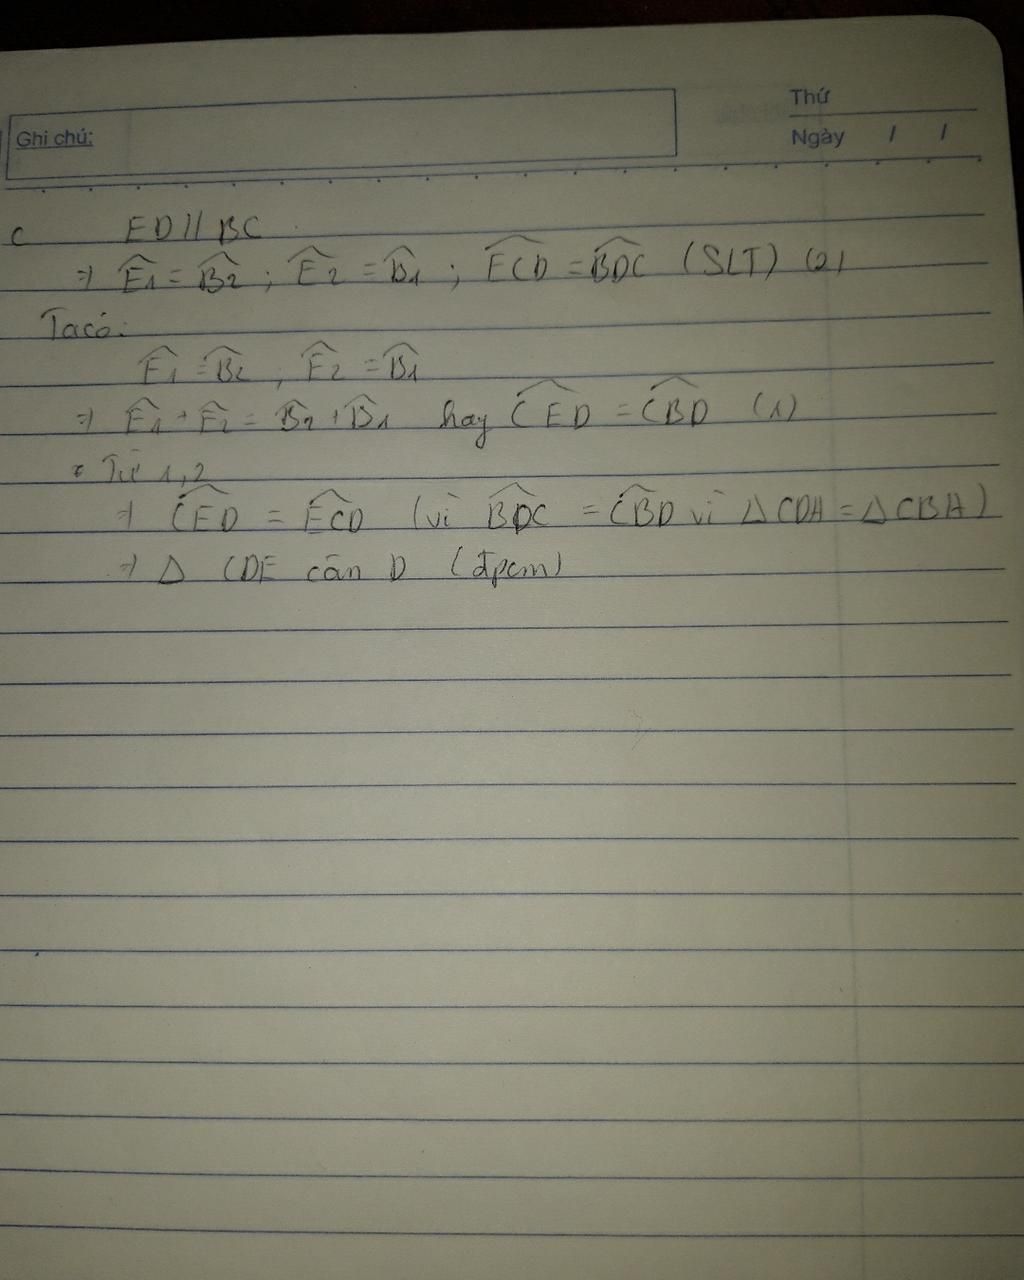 Thứ
Ghi chú:
Ngày / /
c ED // BC
=> Ê1 = B̂2 ; Ê2 = B̂1 ; ÊCD = B̂DC (SLT) (2)
Ta có:
Ê1 = B̂2 ; Ê2 = B̂1
=> Ê1 + Ê2 = B̂2 + B̂1 hay ĈED = ĈBD (1)
Từ 1,2
=> ĈED = ÊCD (vì B̂DC = ĈBD vì Δ CDA = Δ CBA)
=> Δ CDE cân D (đpcm)